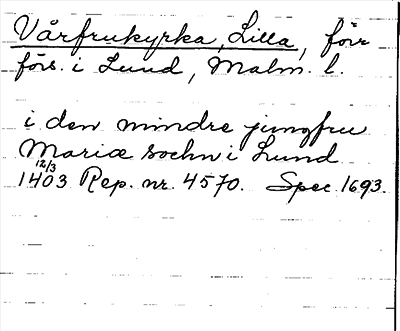 Vårfrukyrka, Lilla, förr
förs. i Lund, Malm. l.
i den mindre jungfru
Mariæ sochn i Lund
12/3
1403 Rep. nr. 4570. Spec. 1693.